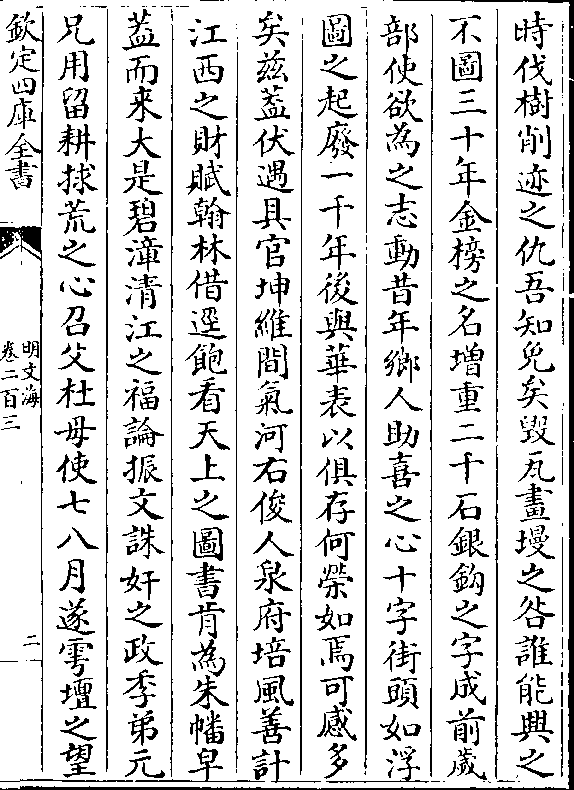 時伐樹削迹之仇吾知免矣毁瓦畫墁之咎誰能興之
不圖三十年金榜之名增重二千石銀鈎之字成前歲
部使欲為之志動昔年鄉人助喜之心十字街頭如浮
圖之起廢一千年後與華表以俱存何榮如焉可感多
矣兹葢伏遇具官坤維間氣河右俊人泉府培風善計
江西之財賦翰林借逕飽看天上之圖書肯為朱幡皁
葢而来大是碧漳清江之福論振文誅奸之政季弟元
兄用留耕捄荒之心召父杜母使七八月遂雩壇之望
欽定四庫全書
明文海
卷二百三
二